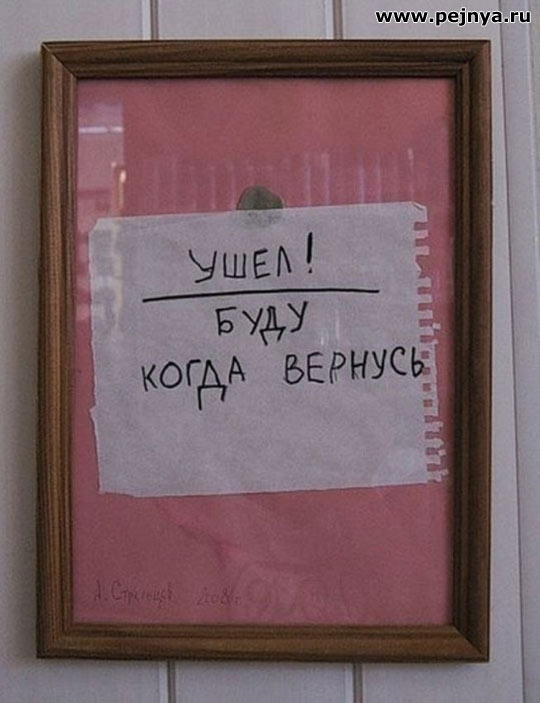 www.pejnya.ru
УШЕЛ!
БУДУ
КОГДА ВЕРНУСЬ
А. Стрельцов